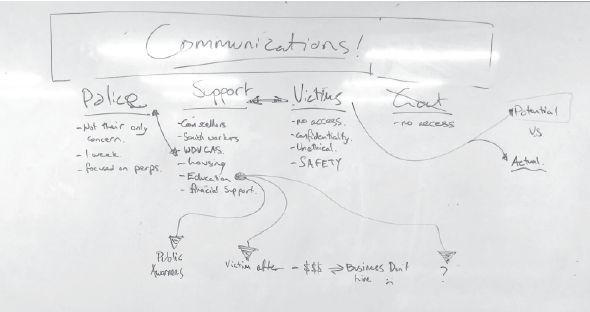 Communications!
Police
- Not their only
concern.
- 1 week
- focused on perps.
Support
- Counsellors
- Social workers
- WDVCAS.
- housing
- Education
- financial support.
Victims
- no access.
- confidentiality.
- Unethical.
- SAFETY
- no access
Potential
VS
Actual.
Public
Victim after - $$$ → Business Don't
?